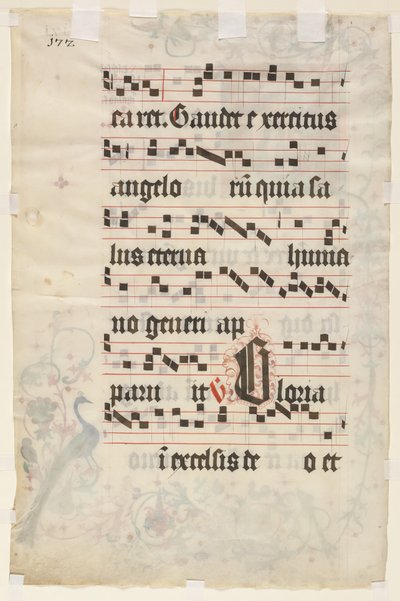 172
ca ret. Gaudet exercitus
angelo rũ quia sa
lus eterna huma
no generi ap
paru it G Gloria
ĩ excelsis de o et